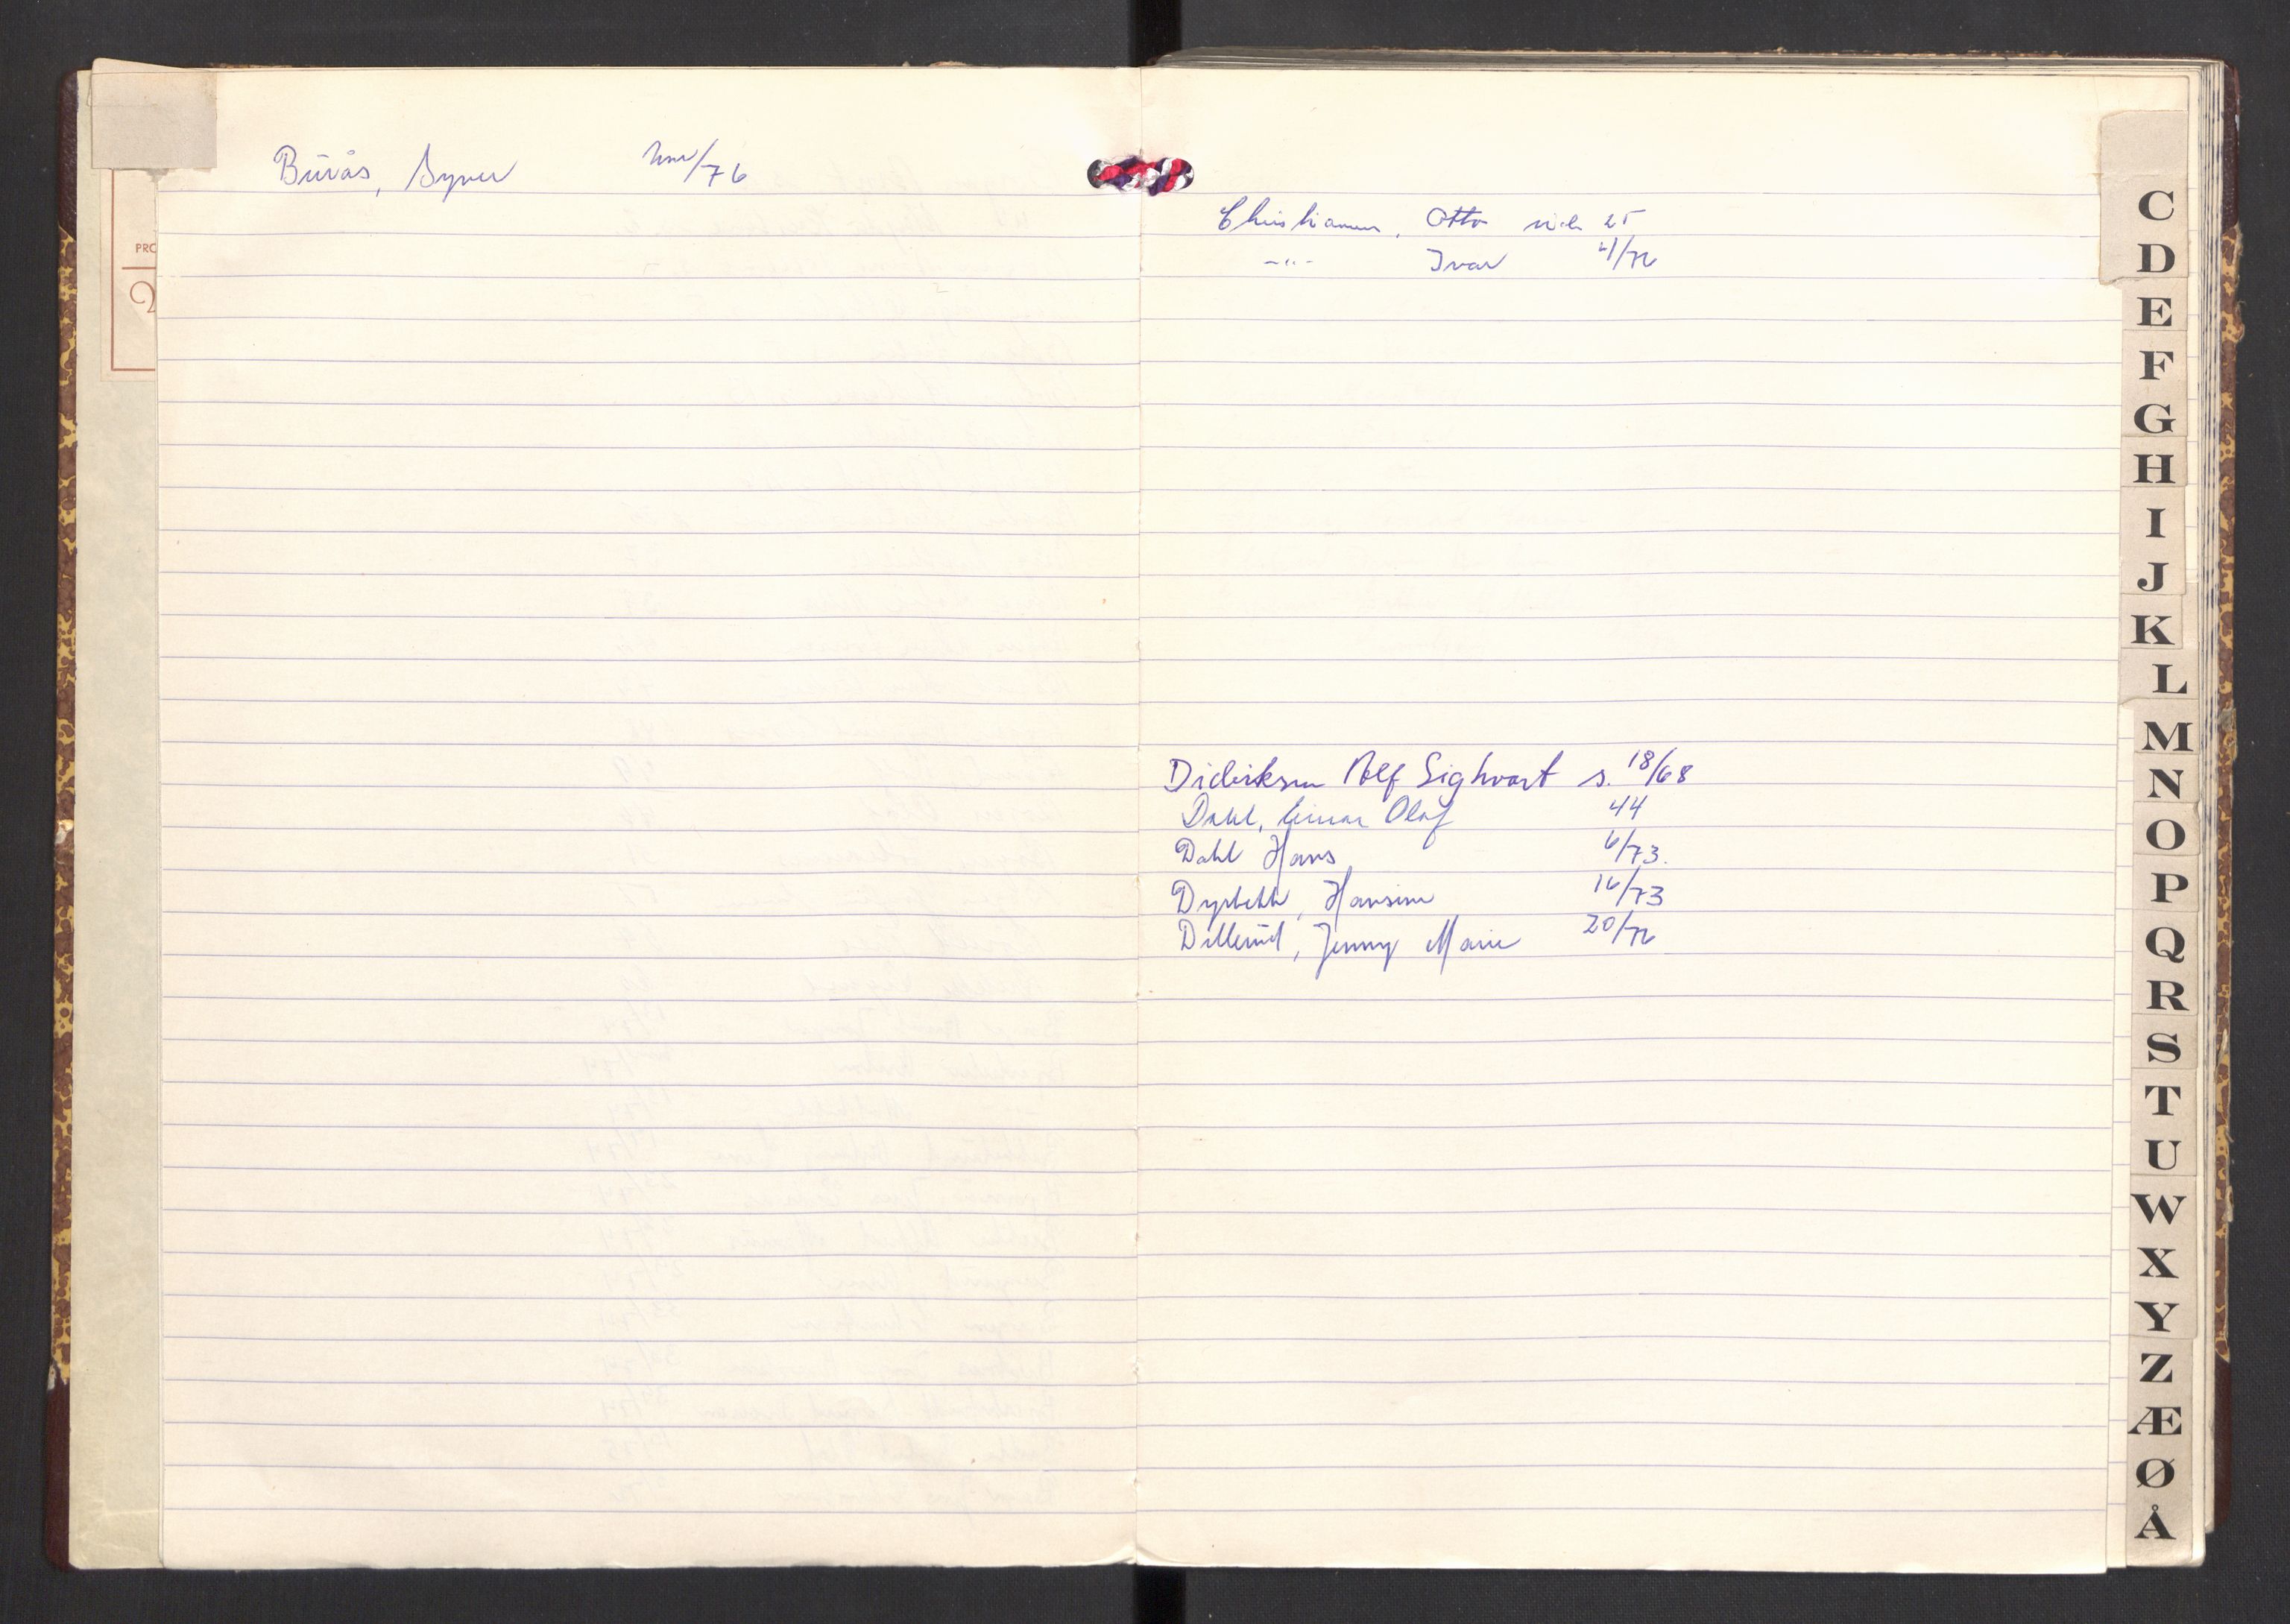 Buraas, Syver /76
PRO
Christiansen, Otto side 25
-"- Ivar 4/76
Dideriksen Rolf Sighvart s. 18/68
Dahl, Einar Olaf 44
Dahl Hans 6/73.
Dyrbekk, Hansine 16/73
Dillerud, Jenny Marie 20/76
C
D
E
F
G
H
I
J
K
L
M
N
O
P
Q
R
S
T
U
W
X
Y
Z
Æ
Ø
Å